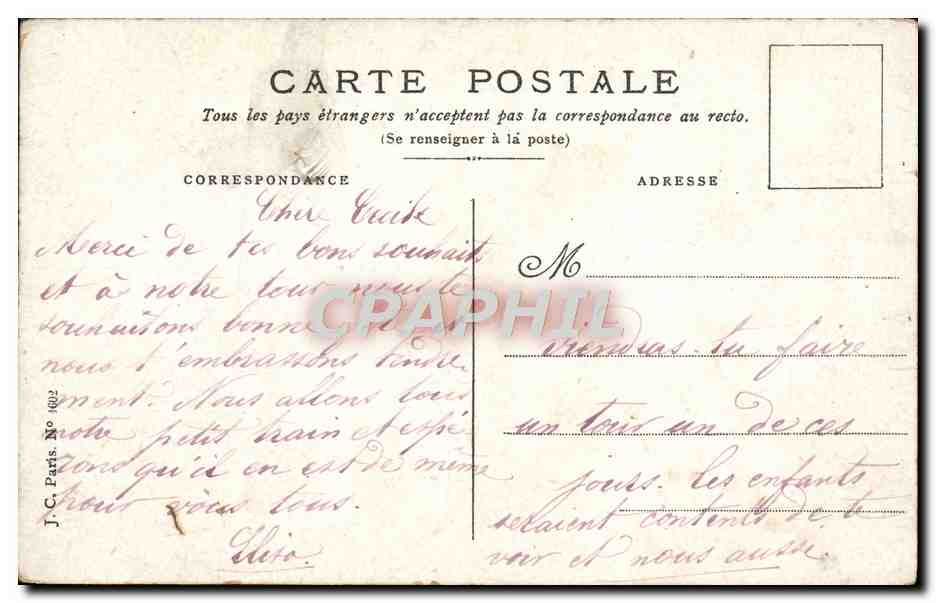 CARTE POSTALE
Tous les pays étrangers n'acceptent pas la correspondance au recto.
(Se renseigner à la poste)
CORRESPONDANCE
Chère Cecile
Merci de tes bons souhaits
et à notre tour nous te
souhaitons bonne et
nous t'embrassons tendre
ment. Nous allons tous
notre petit train et espé
rons qu'il en est de même
pour vous tous.
ADRESSE
M
viendras-tu faire
un tour un de ces
jours. les enfants
seraient contents de te
voir et nous aussi.
J. C. Paris. No 4602
CPAPHIL